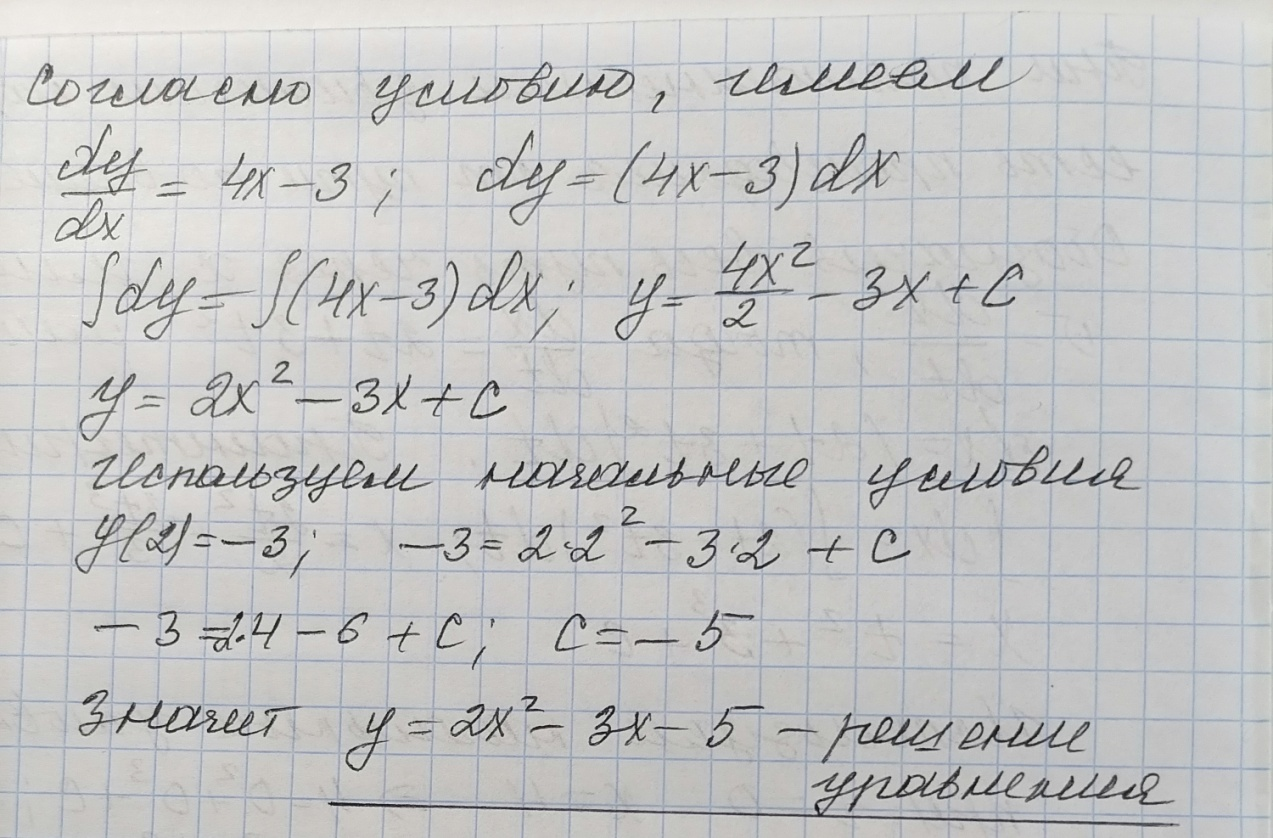 Согласно условию, имеем
dy/dx = 4x - 3; dy = (4x - 3) dx
∫dy = ∫(4x - 3) dx; y = 4x²/2 - 3x + C
y = 2x² - 3x + C
используем начальные условия
y(2) = -3; -3 = 2·2² - 3·2 + C
-3 = 2·4 - 6 + C; C = -5
Значит y = 2x² - 3x - 5 - решение
уравнения